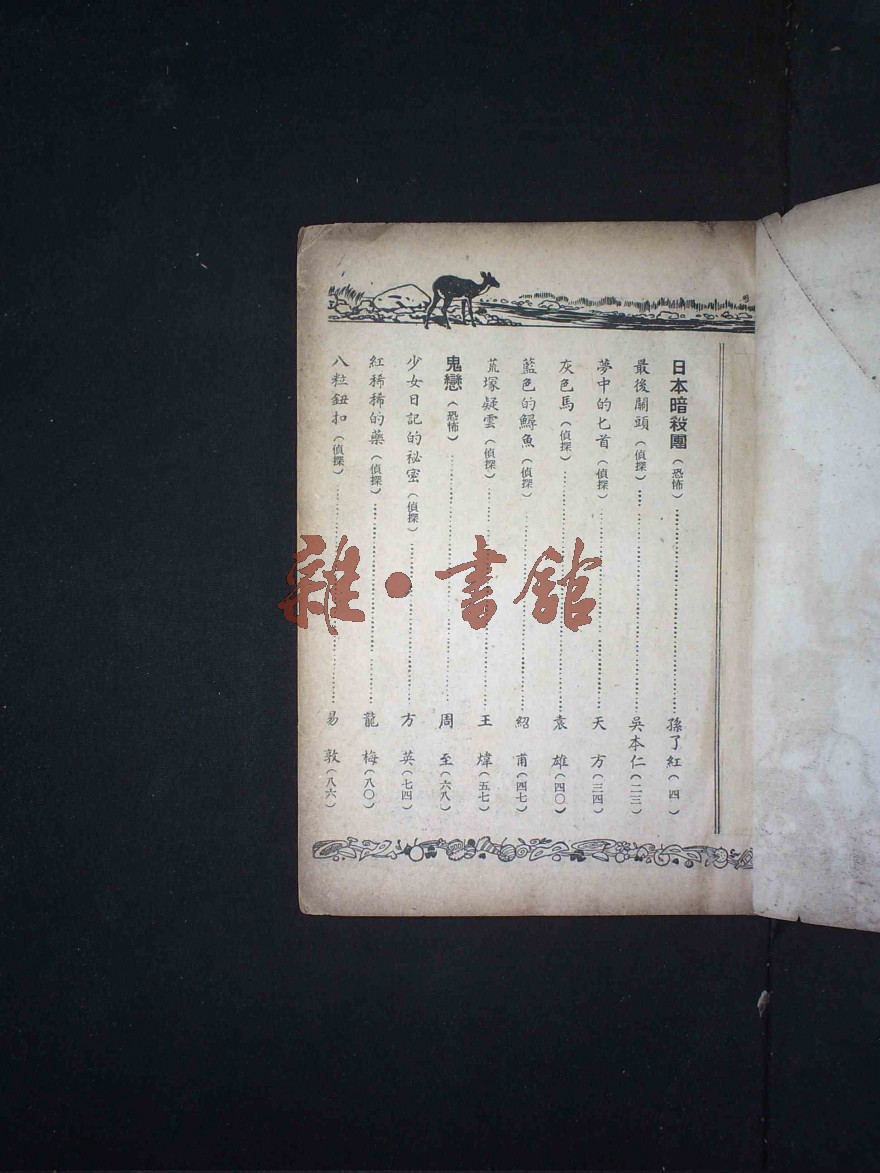 日本暗殺團（恐怖）…………孫了紅（四）
最後關頭（偵探）…………吳本仁（二三）
夢中的匕首（偵探）…………天方（三四）
灰色馬（偵探）…………袁雄（四〇）
藍色的鱘魚（偵探）…………紹甫（四七）
荒塚疑雲（偵探）…………王煒（五七）
鬼戀（恐怖）…………周至（六八）
少女日記的祕密（偵探）…………方英（七四）
紅稀稀的藥（偵探）…………龍梅（八〇）
八粒鈕扣（偵探）…………易敦（八六）
雜·書館